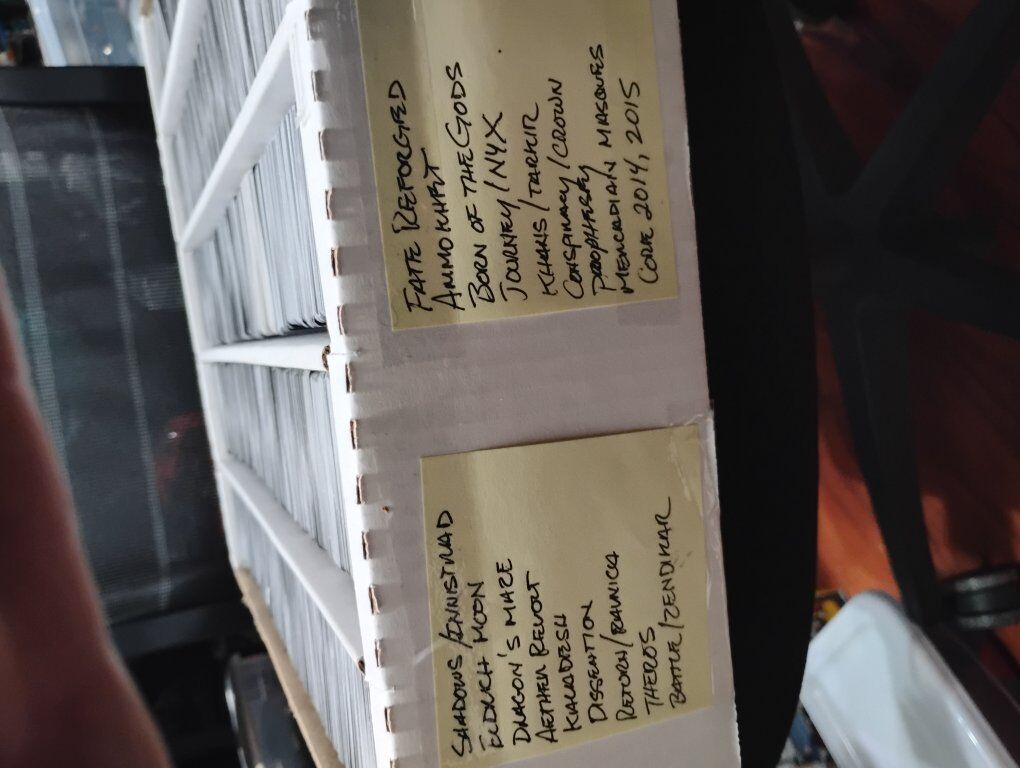 SHADOWS /INNISTRAD
ELDRICH MOON
DRAGON'S MAZE
AETHER REVOLT
KALADESH
DISSENTION
RETURN/RAVNICA
THEROS
BATTLE/ZENDIKAR
FATE REFORGED
AMMOKHET
BORN OF THE GODS
JOURNEY/NYX
KHANS/TARKIR
CONSPIRACY/CROWN
PROPHESEY
MERCADIAN MASQUES
CORE 2014, 2015